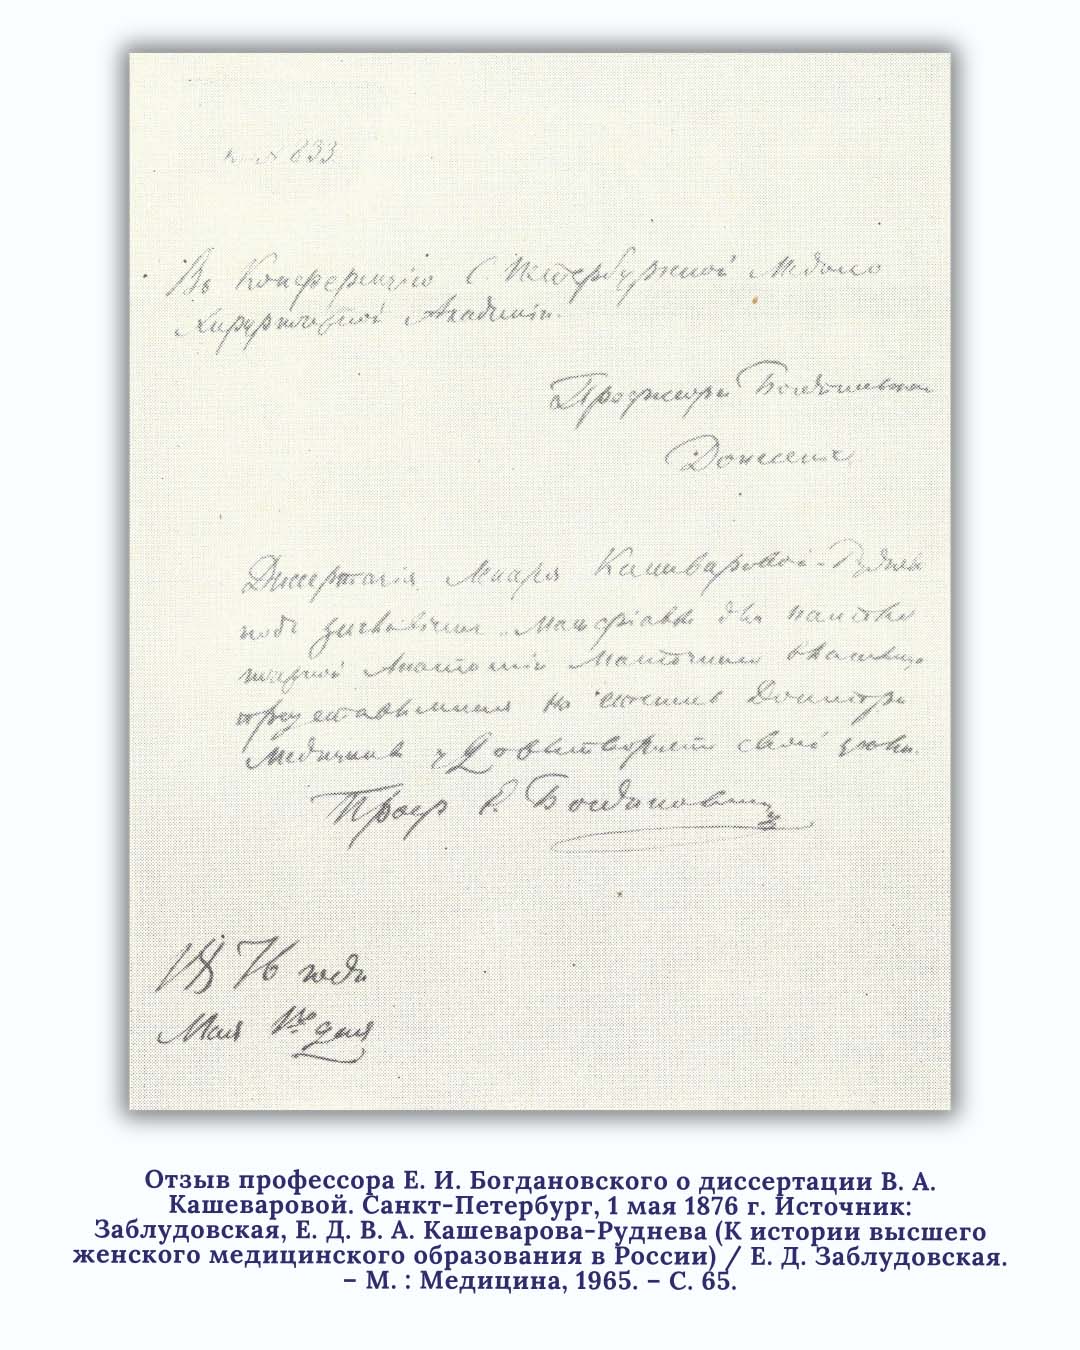 № 833
Въ Конференцію С. Петербургской Медико
Хирургической Академіи.
Профессора Богдановска
Донесеніе
Диссертація Лекаря Кашеваровой-Рудневой
подъ заглавіемъ „Матеріалы для патолого
Анатоміи Маточнаго влагалища
представленная на степень Доктора
Медицины удовлетворяетъ своей цели.
Проф Е. Богдановскій
1876 года
Мая 1го дня
Отзыв профессора Е. И. Богдановского о диссертации В. А.
Кашеваровой. Санкт-Петербург, 1 мая 1876 г. Источник:
Заблудовская, Е. Д. В. А. Кашеварова-Руднева (К истории высшего
женского медицинского образования в России) / Е. Д. Заблудовская.
– М. : Медицина, 1965. – С. 65.